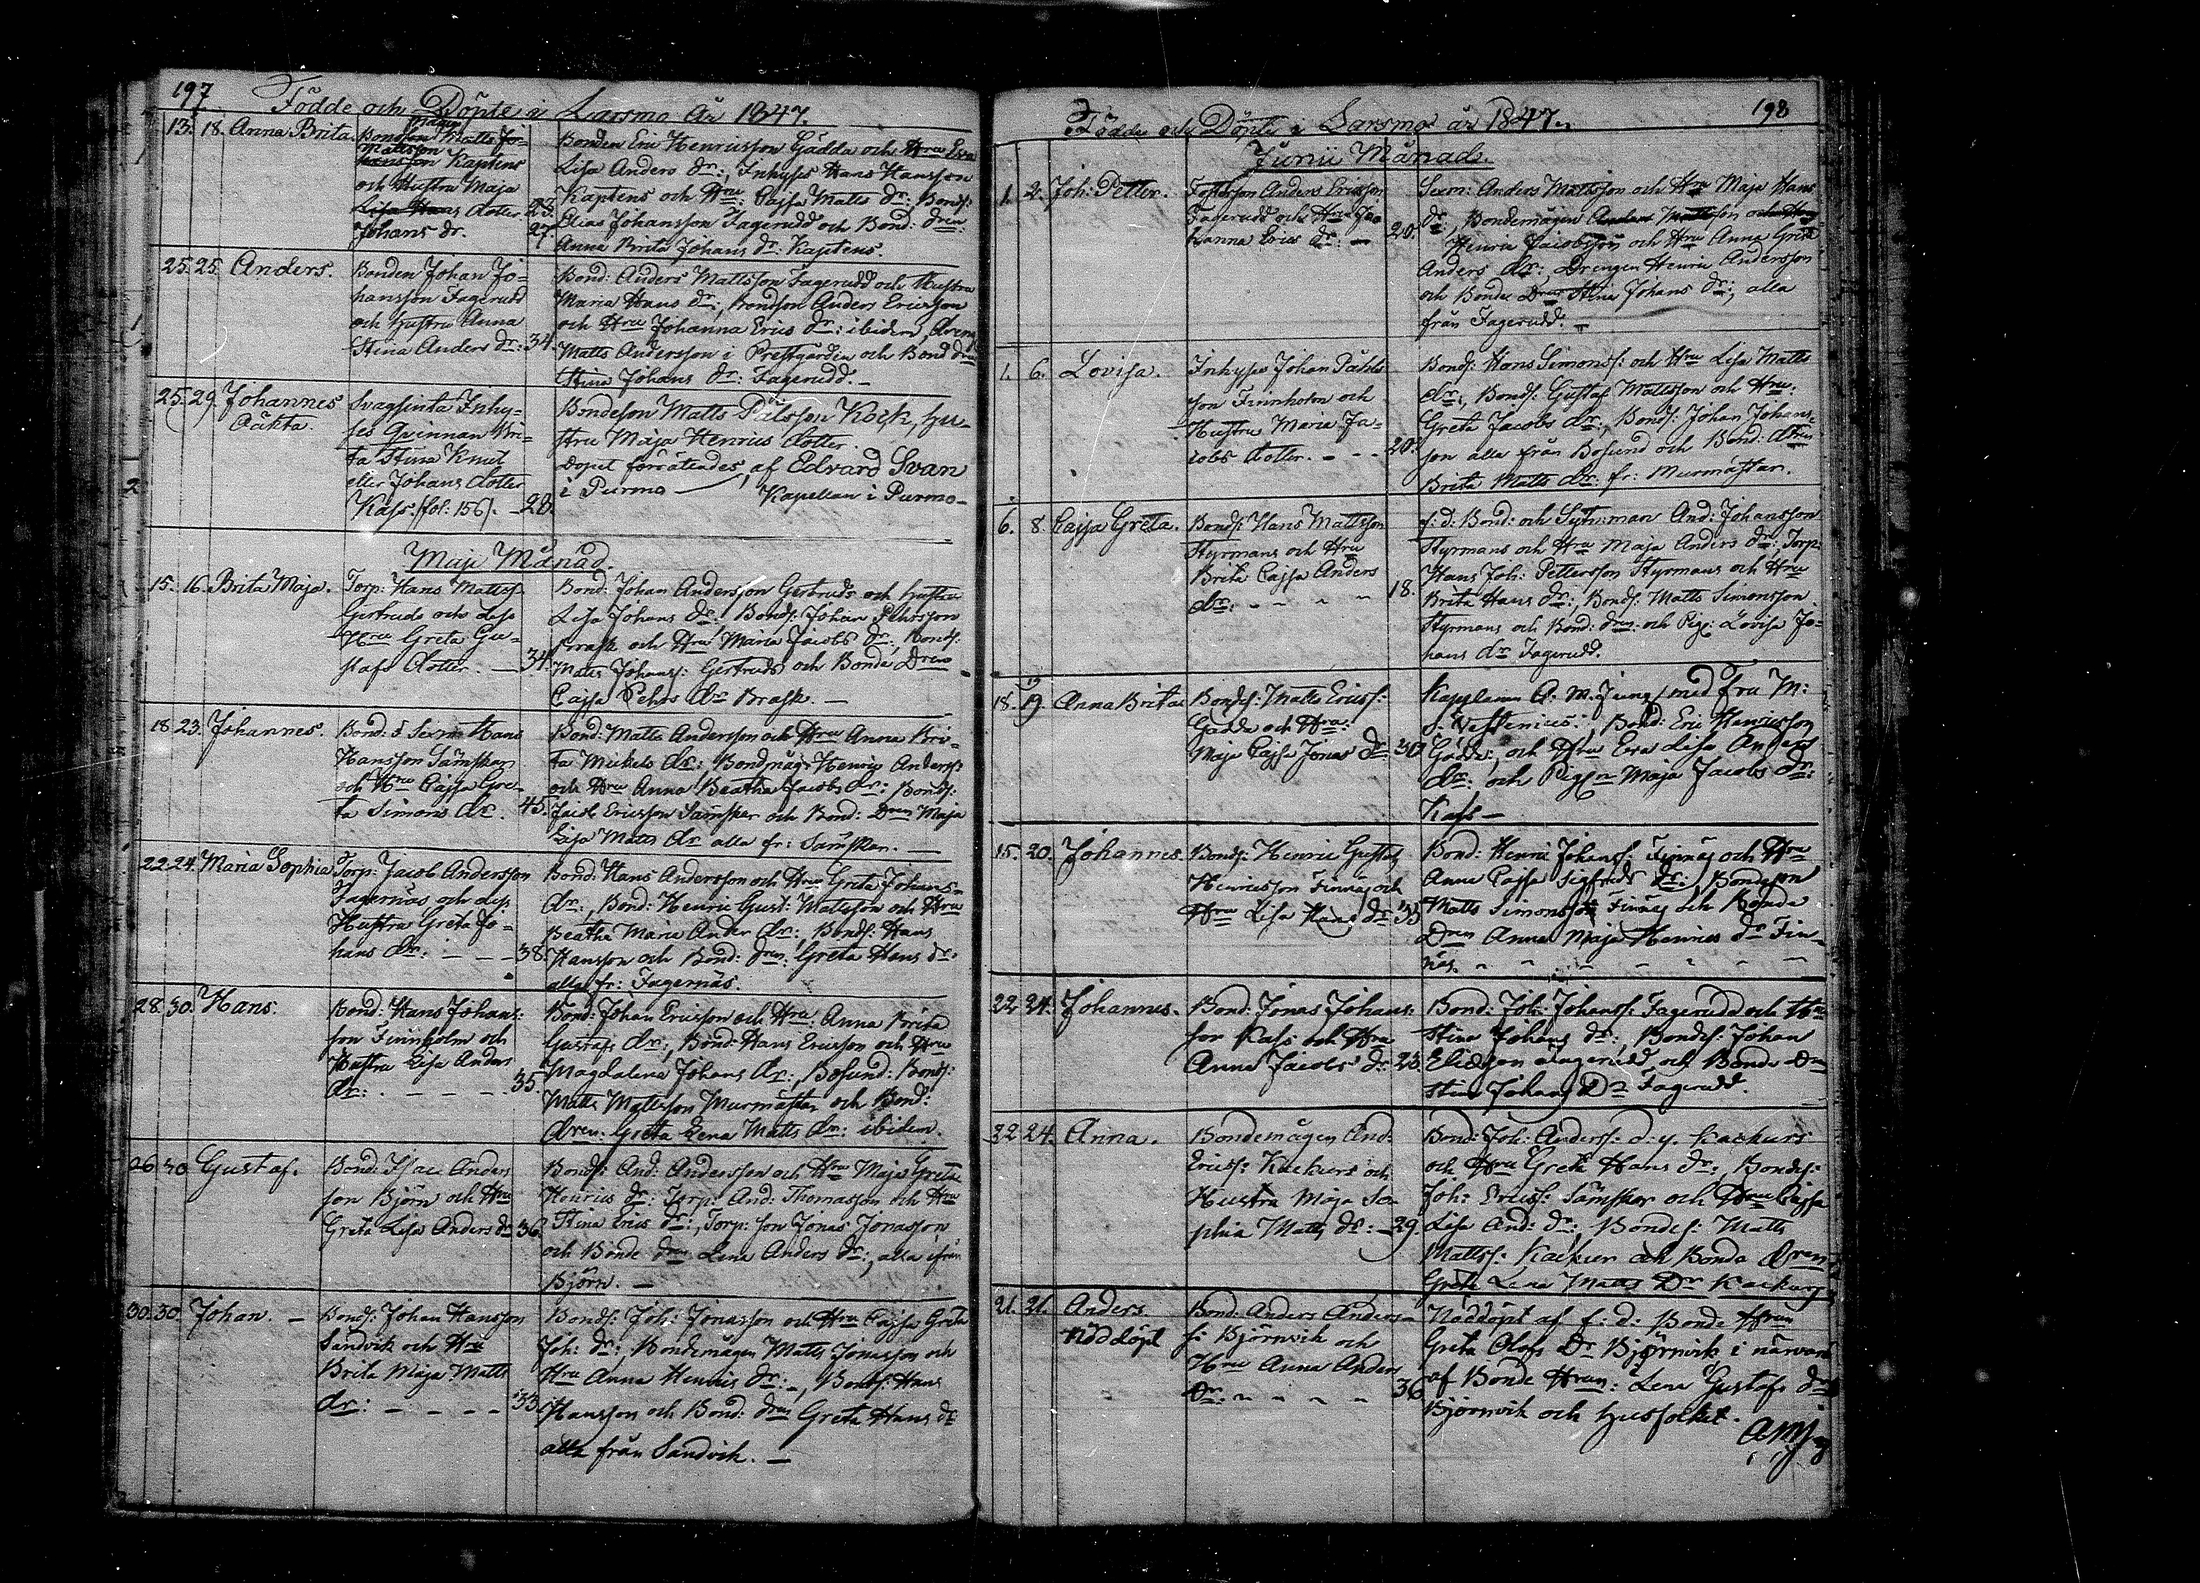 197
Födde och Döpte i Larsmo År 1847.
13. 18. Anna Brita.
Bondson Matts Jo-
Mattsson
hansson Kaptens
och Hustru Maja
Lisa Hans dotter 23.
Johans dr. 27.
Bonden Eric Henricsson Gädda och Hru Eva
Lisa Anders dr:, Inhyses Hans Hansson
Kaptens och Hru: Cajsa Matts dr: Bonds:
Elias Johansson Fagerudd och Bond: dren:
Anna Brita Johans dr: Kaptens.
25. 25. Anders.
Bonden Johan Jo-
hansson Fagerudd
och Hustru Anna
Stina Anders dr: 34.
Bond: Anders Mattsson Fagerudd och Hustru
Maria Hans dr:, Bondson Anders Ericsson
och Hru Johanna Erics dr: ibidem,
Matts Andersson i Prestgården och Bond dren
Stina Johans dr: Fagerudd. –
25. 29. Johannes
Oäkta.
Svagsinta Inhy-
ses Qvinnan Bri-
ta Stina Knut
eller Johans dotter
Kass. /fol: 156/. – 20.
Bondeson Matts Pålsson Kock, hu-
stru Maja Henrics dotter.
dopet förrättades, af Edvard Svan
i Purmo — Kapellan i Purmo –
Maji Månad.
15. 16. Brita Maja.
Torp: Hans Mattss:
Gertruds och dess
Hru Greta Gu-
stafs dotter. — 34.
Bond: Johan Andersson Gertruds och hustru
Lisa Johans dr:, Bonds: Johan Pehrsson
Brask och Hru Maria Jacobs dr:, Bonds:
Matts Johanss: Gertruds och Bonde Dren
Cajsa Pehrs dr Brask. —
18. 23. Johannes.
Bond: o Sexm Hans
Hansson Sämskar
och Hru Cajsa Gre-
ta Simons dr. 45.
Bond: Matts Andersson och Hru Anna Bri-
ta Mickels dr: Bondmåg: Henric Anderss:
och Hru Anna Beatha Jacobs dr: Bonds:
Jacob Ericsson Sämskar och Bond: Dren Maja
Lisa Matts dr alla fr: Sämskar. —
22. 24. Maria Sophia
Torp: Jacob Andersson
Fagernäs och dess
Hustru Greta Jo-
hans dr: – – – 38.
Bond: Hans Andersson och Hru Greta Johans
dr:, Bond: Henric Gust: Mattsson och Hru
Beatha Maria Anders dr:, Bonds: Hans
Hansson och Bond: dren: Greta Hans dr:
alla fr: Fagernäs.
28. 30. Hans.
Bond: Hans Johans:
son Finnholm och
Hustru Lisa Anders
dr: – – – 35.
Bond: Johan Ericsson och Hru: Anna Brita
Gustafs dr:, Bond: Hans Ericsson och Hru
Magdalena Johans dr:, Bosund: Bonds:
Matts Mattsson Murmästar och Bond:
dren: Greta Lena Matts dr: ibidem.
26. 30. Gustaf.
Bond: Isac Anders
son Björn och Hru
Greta Lisa Anders dr 36.
Bonds: And: Andersson och Hru Maja Greta
Henrics dr: Torp: And: Thomasson och Hru
Stina Erics dr:, Torp: son Jonas Jonasson
och Bonde dren Lena Anders dr:, alla ifrån
Björn. —
30. 30. Johan. –
Bonds: Johan Hansson
Sandvik och Hru
Brita Maja Matts
dr: – – – – 33.
Bonds: Joh: Jonasson och Hru Cajsa Greta
Joh: dr:, Bondemågen Matts Jonasson och
Hru Anna Henrics dr: –, Bonds: Hans
Hansson och Bond: dren Greta Hans dr
alla från Sandvik. —
198
Födde och Döpte i Larsmo år 1847.
Junii Månad.
1. 2. Joh: Petter.
Fosterson Anders Ericsson
Fagerudd och Hru Jo-
hanna Erics dr: – 20.
Sexm: Anders Mattsson och Hru Maja Hans
dr:, Bondemågen Anders Mattsson och Hru
Henric Jacobsson och Hru Anna Greta
Anders dr:, Drengen Henric Andersson
och Bonde Dren Stina Johans dr:, alla
från Fagerudd. –
1. 6. Lovisa.
Inhyses Johan Påhls
son Finnholm och
Hustru Maria Ja-
cobs dotter. – – – 20.
Bonds: Hans Simonss: och Hru Lisa Matts
dr:, Bonds: Gustaf Mattsson och Hru:
Greta Jacobs dr:, Bonds: Johan Johans-
son alla från Bosund och Bond: dren
Brita Matts dr: fr: Murmästar.
6. 8. Cajsa Greta.
Bonds: Hans Mattsson
Styrmans och Hru
Brita Cajsa Anders
dr: – – – – 18.
f: d: Bond: och Sytn:man And: Johansson
Styrmans och Hru Maja Anders dr:, Torp:
Hans Joh: Pettersson Styrmans och Hru
Brita Hans dr:, Bonds: Matts Simonsson
Styrmans och Bond: dren: och Pig: Lovisa Jo-
hans dr Fagerudd.
19
18. 19. Anna Brita
Bonds: Matts Ericss:
Gädda och Hru:
Maja Cajsa Jonas dr 30
Kapplanen A. M. Jung, med Fru M:
Bond: Eric Henricsson
Gädda, och Hru Eva Lisa Anders
dr: och Pigan Maja Jacobs dr:
Kass —
15. 20. Johannes.
Bonds: Henric Gustaf
Henricsson Finnäs och
Hru Lisa Hans dr 33
Bond: Henric Johanss: Finnäs och Hru
Anna Cajsa Sigfrids dr:, Bondeson
Matts Simonsson Finnäs och Bonde
Dren Anna Maja Henrics dr Fin-
näs. – – – – – –
22 24. Johannes.
Bond: Jonas Johans:
son Kass och Hru
Anna Jacobs dr 23.
Bond: Joh: Johanss: Fagerudd och Hru
Stina Johans dr:, Bondes: Johan
Eliasson Fagerudd och Bonde Dr
Stina Johans Dr Fagerudd.
22 24. Anna.
Bondemågen And:
Ericss: Kackurs och
Hustru Maja So-
phia Matts dr: – 29.
Bond: Joh: Anderss: d: y. Kackurs
och Hru Greta Hans dr:, Bondes:
Joh: Ericss: Sämskar och Hru Cajsa
Lisa And: dr:, Bondes: Matts
Mattss: Kackur och Bonde dren
Greta Lena Matts Dr Kackurs
21. 21. Anders
nöddöpt
Bond: Anders Anders-
s: Björnvik och
Hru Anna Anders
Dr: – – – – 36
Nöddöpt af f: d: Bonde Hrun
Greta Olofs Dr Björnvik i närvaro
af Bonde Hrun: Lena Gustafs dr
Björnvik och husfolket.
AMJg